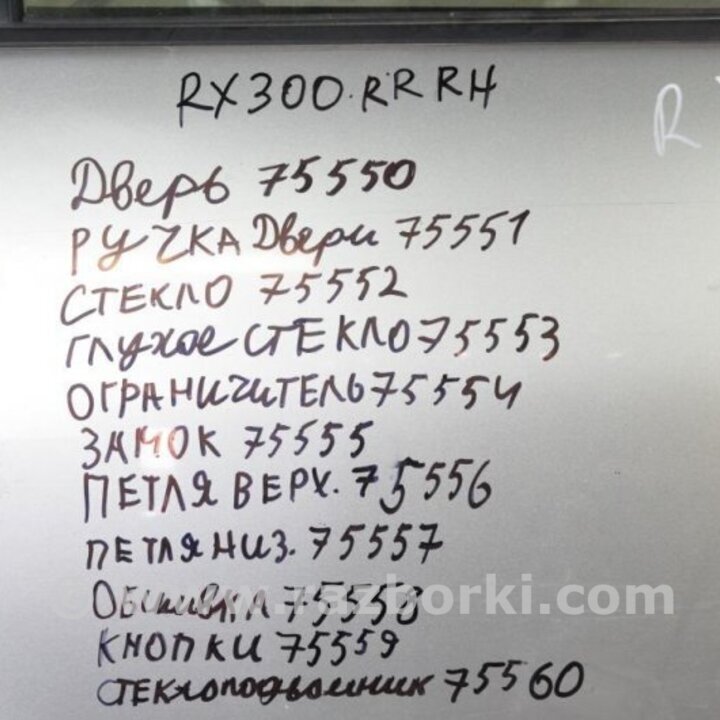 RX300.RRRH
R
Дверь 75550
РУЧКА Двери 75551
СТЕКЛО 75552
ГЛУХОЕ СТЕКЛО 75553
ОГРАНИЧИТЕЛЬ 75554
ЗАМОК 75555
ПЕТЛЯ ВЕРХ. 75556
ПЕТЛЯ НИЗ. 75557
Обшивка 75558
www.razborki.com
КНОПКИ 75559
Стеклоподьомник 75560